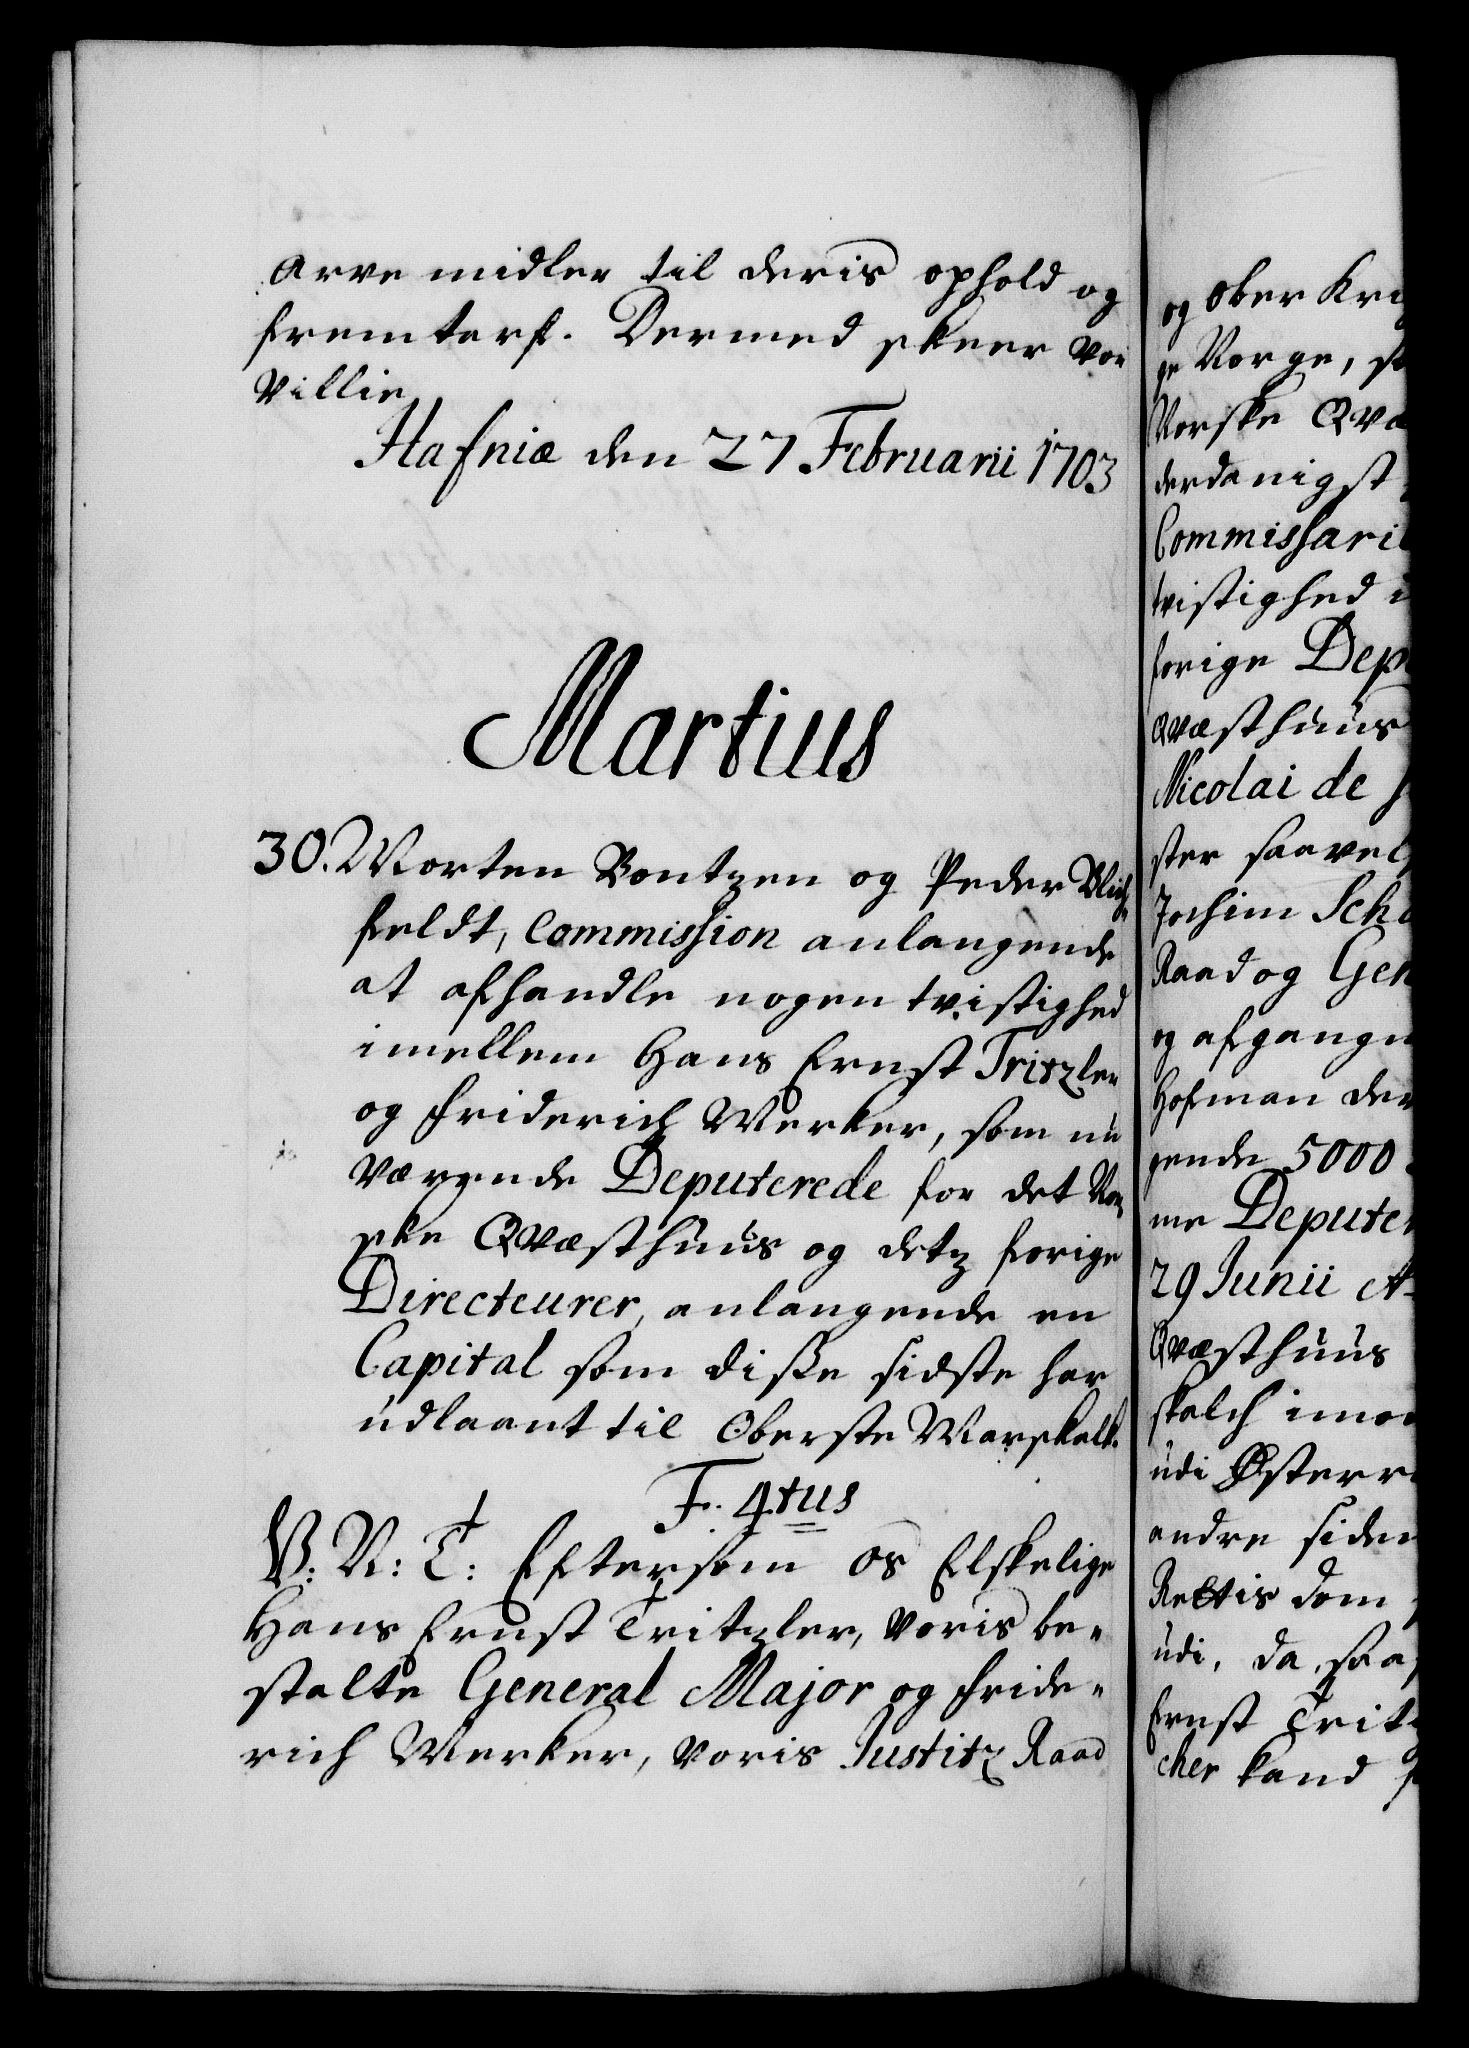 arve midler til deris ophold og
fremtarf. Dermed skeer vor
villie
Hafniæ den 27 Februarii 1703
Martius
30. Morten Bontzen og Peder Blich
feldt, Commission anlangende
at afhandle nogen tvistighed
imellem Hans Ernst Tritzler
og Friderich Werker, som nu
værende Deputerede for det Nor
ske Qvæsthuus og detz forige
Directeurer, anlangende en
Capital som disse sidste har
udlaant til Oberste Marskalk.
F. 4tus
V: N: T: Eftersom os Elskelige
Hans Ernst Tritzler, voris be-
stalte General Major og Fride-
rich Werker, voris Justitz Raad
og Ober Kri
ge Norge, s
Norske Qvæ
derdanigst
Commissari
tvistighed i
forige Dep
Qvæsthuus
Nicolai de
ster saavel
Jochim Sch
Raad og Gen
og afgangn
Hofman der
gende 5000
me Deputer
29 Junii A
Qvæsthuus
skalch imo
udi Østerr
andre siden
Rettis dom
udi, da saa
Ernst Trit
cher kand